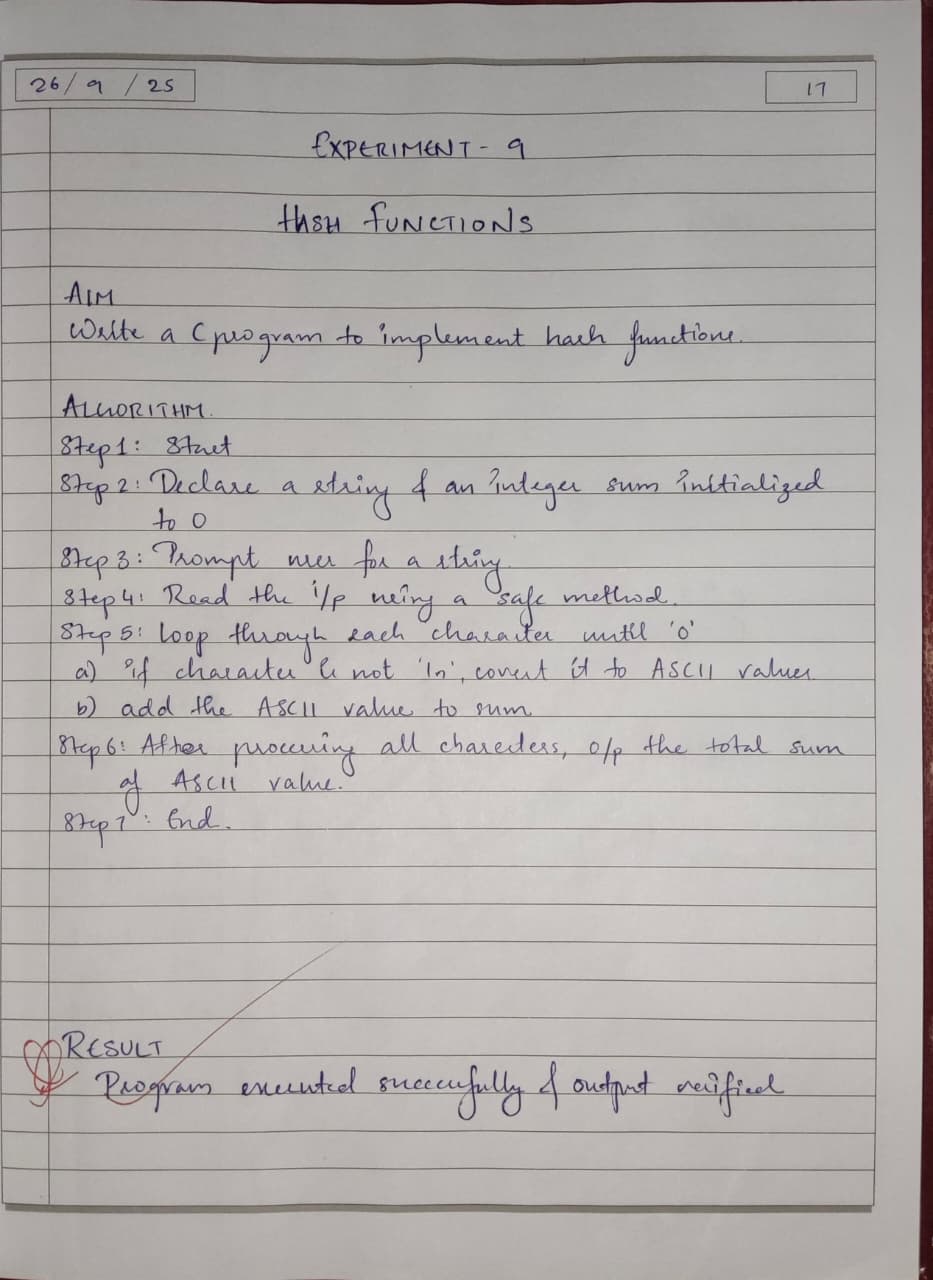 26/9/25
17
EXPERIMENT - 9
HASH FUNCTIONS
AIM
Write a C program to implement hash functions.
ALGORITHM.
Step 1: Start
Step 2: Declare a string & an integer sum initialized
to 0
Step 3: Prompt user for a string.
Step 4: Read the i/p using a safe method.
Step 5: Loop through each character until '0'
a) if character is not '\n', covert it to ASCII values
b) add the ASCII value to sum
Step 6: After processing all charecters, o/p the total sum
of ASCII value.
Step 7: End.
RESULT
Program executed successfully & output verified